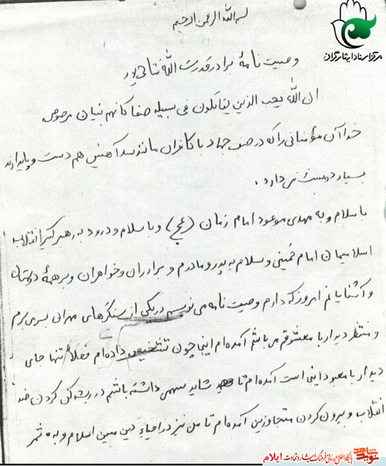 بسم الله الرحمن الرحیم
مرکز اسناد ایثارگران
وصیت نامهٔ برادر قدرت الله شائی پور
ان الله یحب الذین یقاتلون فی سبیله صفا کانهم بنیان مرصوص
خدا آن مؤمنانی را که در صف جهاد با کافران مانند سد آهنین هم دست و پایدارند
بسیار دوست می دارد.
با سلام به مهدی موعود امام زمان (عج) و با سلام و درود به رهبر کبیر انقلاب
اسلامیمان امام خمینی و سلام به پدر و مادرم و برادران و خواهران و بر همهٔ دوستان
و آشنایانم امروز که دارم وصیت نامه می نویسم در یکی از سنگرهای مهران بسر می برم
و منتظر دیدار با معشوقم می باشم آمده ام اینجا چون تشخیص داده ام فعلا تنها جای
دیدار با معبود اینجا است آمده ام تا شاید سهمی داشته باشم در ریشه کن کردن ضد
انقلاب و بیرون کردن متجاوزین آمده ام تا من نیز در احیاء دین مبین اسلام و به ثمر
نوید شاهد
پایگاه اطلاع رسانی فرهنگ ایثار و شهادت ایلام